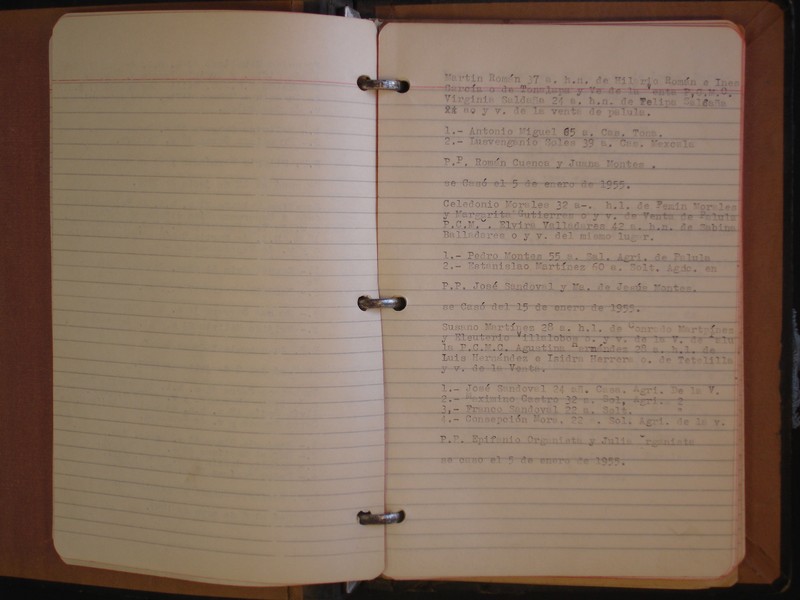 Martin Román 37 a. h.n. de Hilario Román e Ines
García o de Tonalapa y Ve de la Venta P.C.M.C.
Virginia Saldaña 24 a. h.n. de Felipa Saldaña
24 ao y v. de la venta de palula.
1.- Antonio Miguel 65 a. Cas. Tomo.
2.- Luevenganio Soles 39 a. Cas. Mezcala
P.P. Román Cuenca y Juana Montes .
se Casó el 5 de enero de 1955.
Celedonio Morales 32 a-. h.l. de Femin Morales
y Margarita Gutierres o y v. de Venta de Palula
P.C.M. Elvira Valladares 42 a. h.n. de Sabina
Balladares o y v. del mismo lugar.
1.- Pedro Montes 55 a. Sal. Agri. de Palula
2.- Estanislao Martínez 60 a. Solt. Agdo. en
P.P. José Sandoval y Ma. de Jesús Montes.
se Casó del 15 de enero de 1955.
Susano Martínez 28 a. h.l. de Conrado Martínez
y Eleuterio Villalobos o. y v. de la V. de
la P.C.M.C. Agustina Hernández 28 a. h.l. de
Luis Hernández e Isidra Herrera o. de Tetelilla
y v. de la Venta.
1.- José Sandoval 24 añ. Casa. Agri. De la V.
2.- Maximino Castro 32 a. Sol, Agri. 2
3,- Franco Sandoval 22 a. Solt. "
4.- Concepción Mora. 22 a. Sol. Agri. de la v.
P.P. Epifanio Organista y Julia Organista
se caso el 5 de enero de 1955.